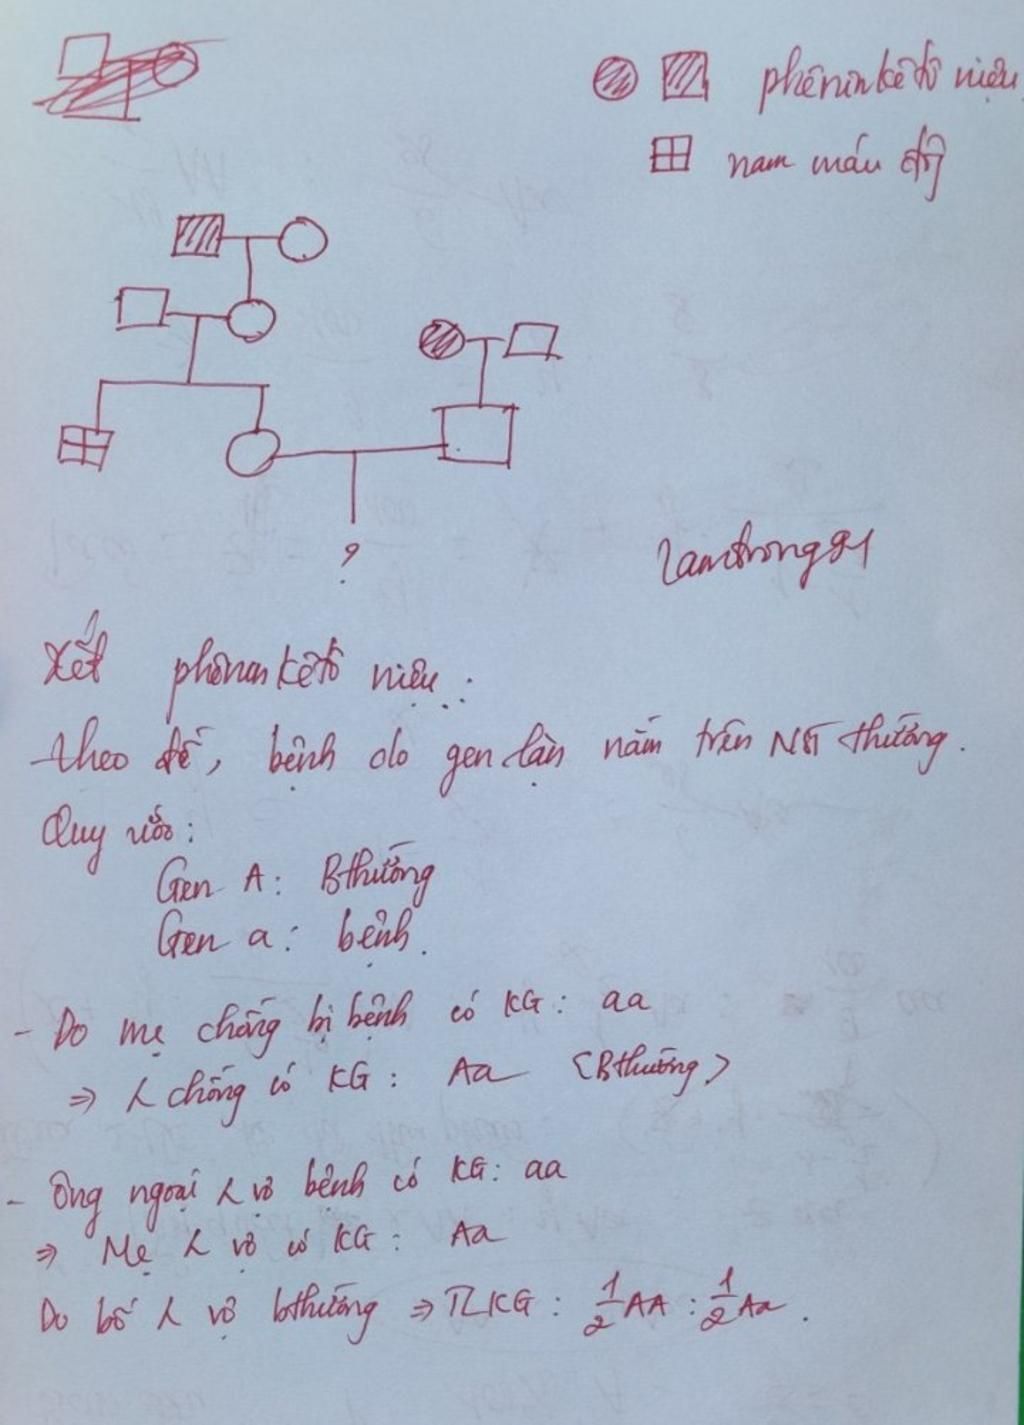 phêninkêtô niệu
nam máu đg
?
lamtrong91
Xét phêninkêtô niệu :
theo đề, bệnh do gen lặn nằm trên NST thường.
Quy ước :
Gen A : Bthường
Gen a : bệnh.
- Do mẹ chồng bị bệnh có KG : aa
⇒ λ chồng có KG : Aa (Bthường)
- Ông ngoại λ vợ bệnh có KG : aa
⇒ Mẹ λ vợ có KG : Aa
Do bố λ vợ bthường ⇒ TLKG : 1/2 AA : 1/2 Aa .